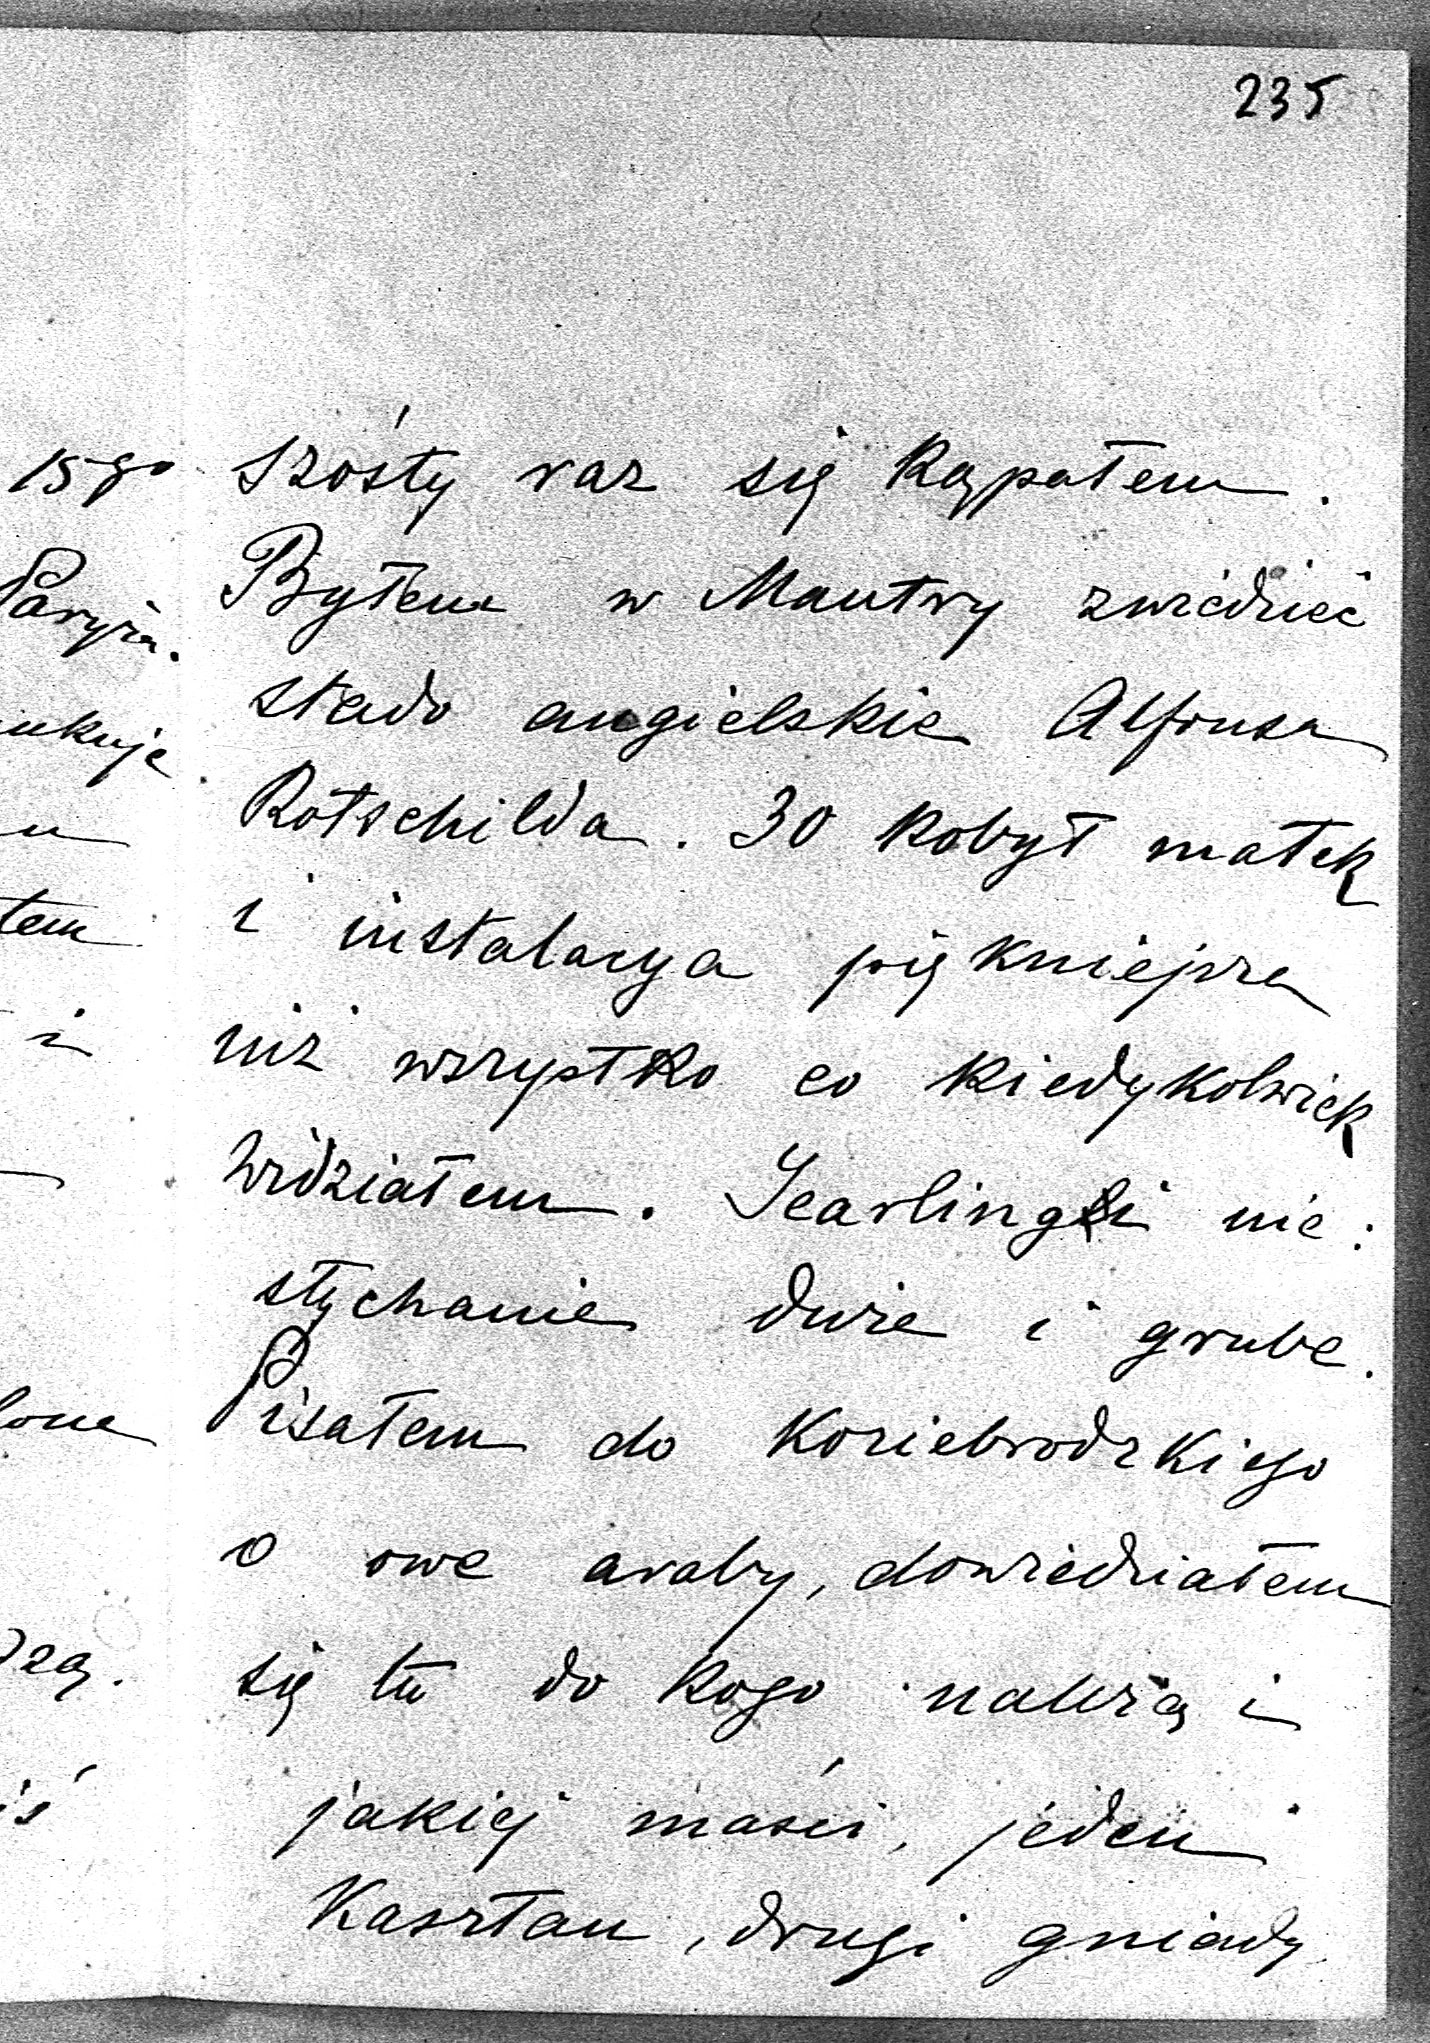 235
szósty raz się kąpałem.
Byłem w Mautry zwiedzieć
stado angielskie Alfonsa
Rotschilda. 30 kobył matek
i instalacya piękniejsza
niż wszystko co kiedykolwiek
widziałem. Yearlingi nie:
słychanie duże i grube.
Pisałem do Koziebrodzkiego
o owe araby, dowiedziałem
się tu do kogo należą i
jakiej maści, jeden
Kasztan, drugi gniady
15go
Paryża.
tem
i